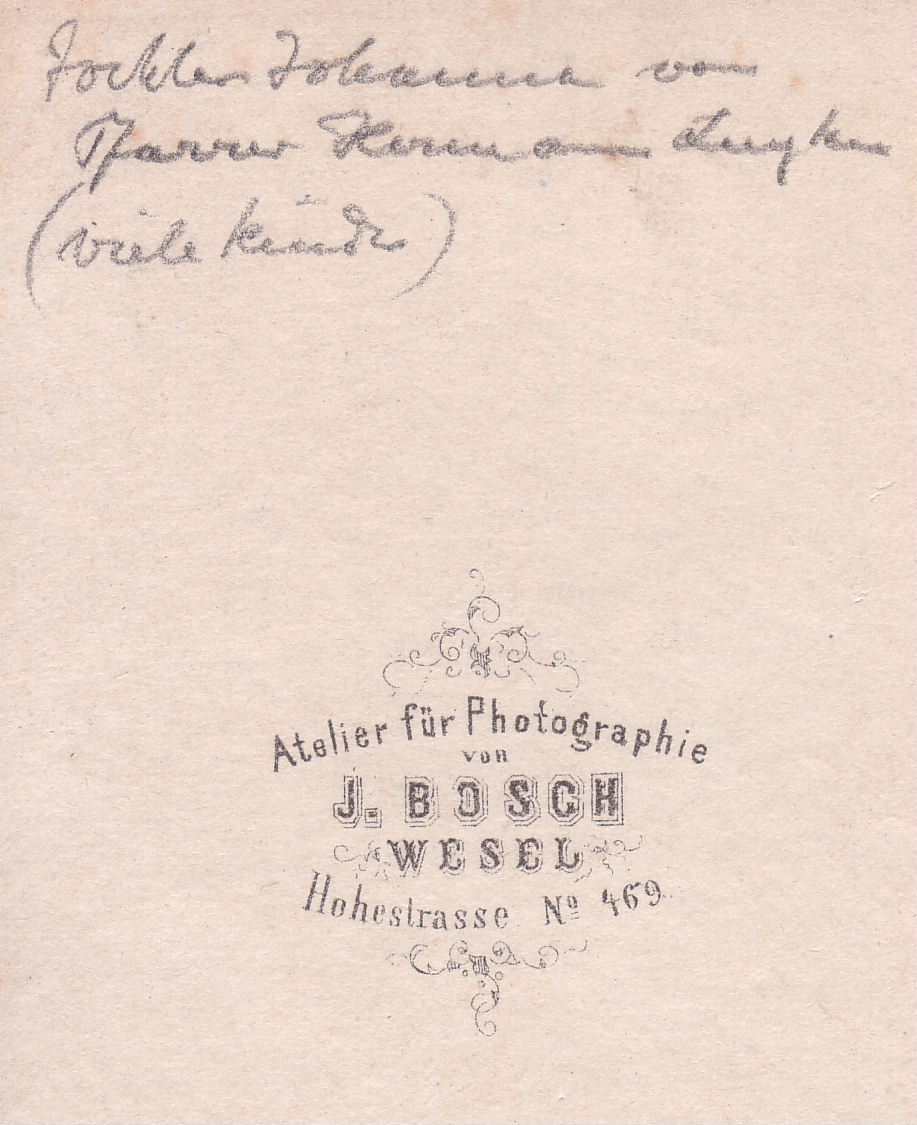 Tochter Johanna von
Pfarrer Hermann Luyken
(viele Kinder)
Atelier für Photographie
von
J. BOSCH
WESEL
Hohestrasse Nº 469